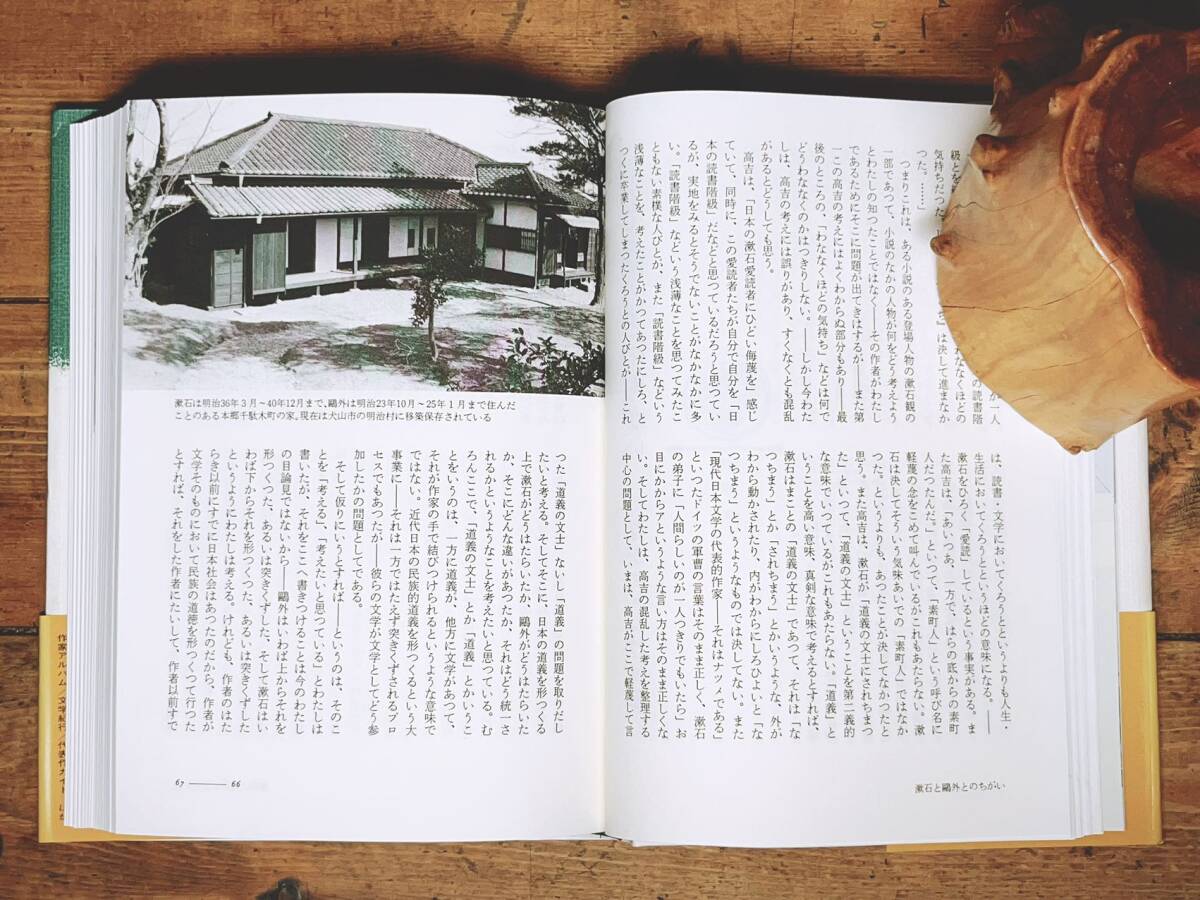 が一人
の読書階
級とを
なくほどの
気持ちだつた
」は決して進まなか
つた。……
つまりこれは、ある小説のある登場人物の漱石観の
一部であつて、小説のなかの人物が何をどう考えよう
とわたしの知つたことではなく──その作者がわたし
であるためにそこに問題が出てきはするが──また第
一この高吉の考えにはよくわからぬ部分もあり──最
後のところの、「わななくほどの気持ち」などは何で
どうわななくのかはつきりしない。──しかし今わた
しは、高吉の考えには誤りがあり、すくなくとも混乱
があるとどうしても思う。
高吉は、「日本の漱石愛読者にひどい侮蔑を」感じ
ていて、同時に、この愛読者たちが自分で自分を「日
本の読書階級」だなどと思つているだろうと思つてい
るが、実地をみるとそうでないことがなかなかに多
い。「読書階級」などという浅薄なことを思つてみたこ
ともない素樸な人びとが、また「読書階級」などという
浅薄なことを、考えたことがかつてあつたにしろ、と
つくに卒業してしまつたくろうとの人びとが──これ
は、読書・文学においてくろうとというよりも人生・
生活においてくろうとというほどの意味になる。──
漱石をひろく「愛読」しているという事実がある。ま
た高吉は、「あいつあ、一方で、はらの底からの素町
人だつたんだ。」といつて、「素町人」という呼び名に
軽蔑の念をこめて叫んでいるがこれもあたらない。漱
石は決してそういう気味あいでの「素町人」ではなか
つた。というよりも、あつたことが決してなかつたと
思う。また高吉は、漱石が「道義の文士にされちまつ
た」といつて、「道義の文士」ということを第二義的
な意味でいつているがこれもあたらない。「道義」と
いうことを高い意味、真剣な意味で考えるとすれば、
漱石はまことの「道義の文士」であつて、それは「な
つちまう」とか「されちまう」とかいうような、外が
わから動かされたり、内がわからにしろひよいと「な
つちまう」というようなものでは決してない。また
「現代日本文学の代表的作家──それはナツメである」
といつたドイツの軍曹の言葉はそのまま正しく、漱石
の弟子に「人間らしいのが一人つきりでもいたら」お
目にかからアというような言い方はそのまま正しくな
い。そしてわたしは、高吉の混乱した考えを整理する
中心の問題として、いまは、高吉がここで軽蔑して言
漱石と鷗外とのちがい
漱石は明治36年3月～40年12月まで、鷗外は明治23年10月～25年1月まで住んだ
ことのある本郷千駄木町の家。現在は犬山市の明治村に移築保存されている
つた「道義の文士」ないし「道義」の問題を取りだし
たいと考える。そしてそこに、日本の道義を形つくる
上で漱石がどうはたらいたか、鷗外がどうはたらいた
か、そこにどんな違いがあつたか、それはどう統一さ
れるかというようなことを考えたいと思つている。む
ろんここで、「道義の文士」とか「道義」とかいうこ
とをいうのは、一方に道義が、他方に文学があつて、
それが作家の手で結びつけられるというような意味で
ではない。近代日本の民族的道義を形つくるという大
事業に──それは一方ではたえず突きくずされるプロ
セスでもあつたが──彼らの文学が文学としてどう参
加したかの問題としてである。
そして仮りにいうとすれば──というのは、そのこ
とを「考える」、「考えたいと思つている」とわたしは
書いたが、それをここへ書きつけることは今のわたし
の目論見ではないから──鷗外はいわば上からそれを
形つくつた、あるいは突きくずした。そして漱石はい
わば下からそれを形つくつた、あるいは突きくずした
というようにわたしは考える。けれども、作者のはた
らき以前にすでに日本社会はあつたのだから、作者が
文学そのものにおいて民族の道徳を形つくつて行つた
とすれば、それをした作者にたいして、作者以前すで
67 ── 66
作家アルバム／文学紀行／代表作ガイド